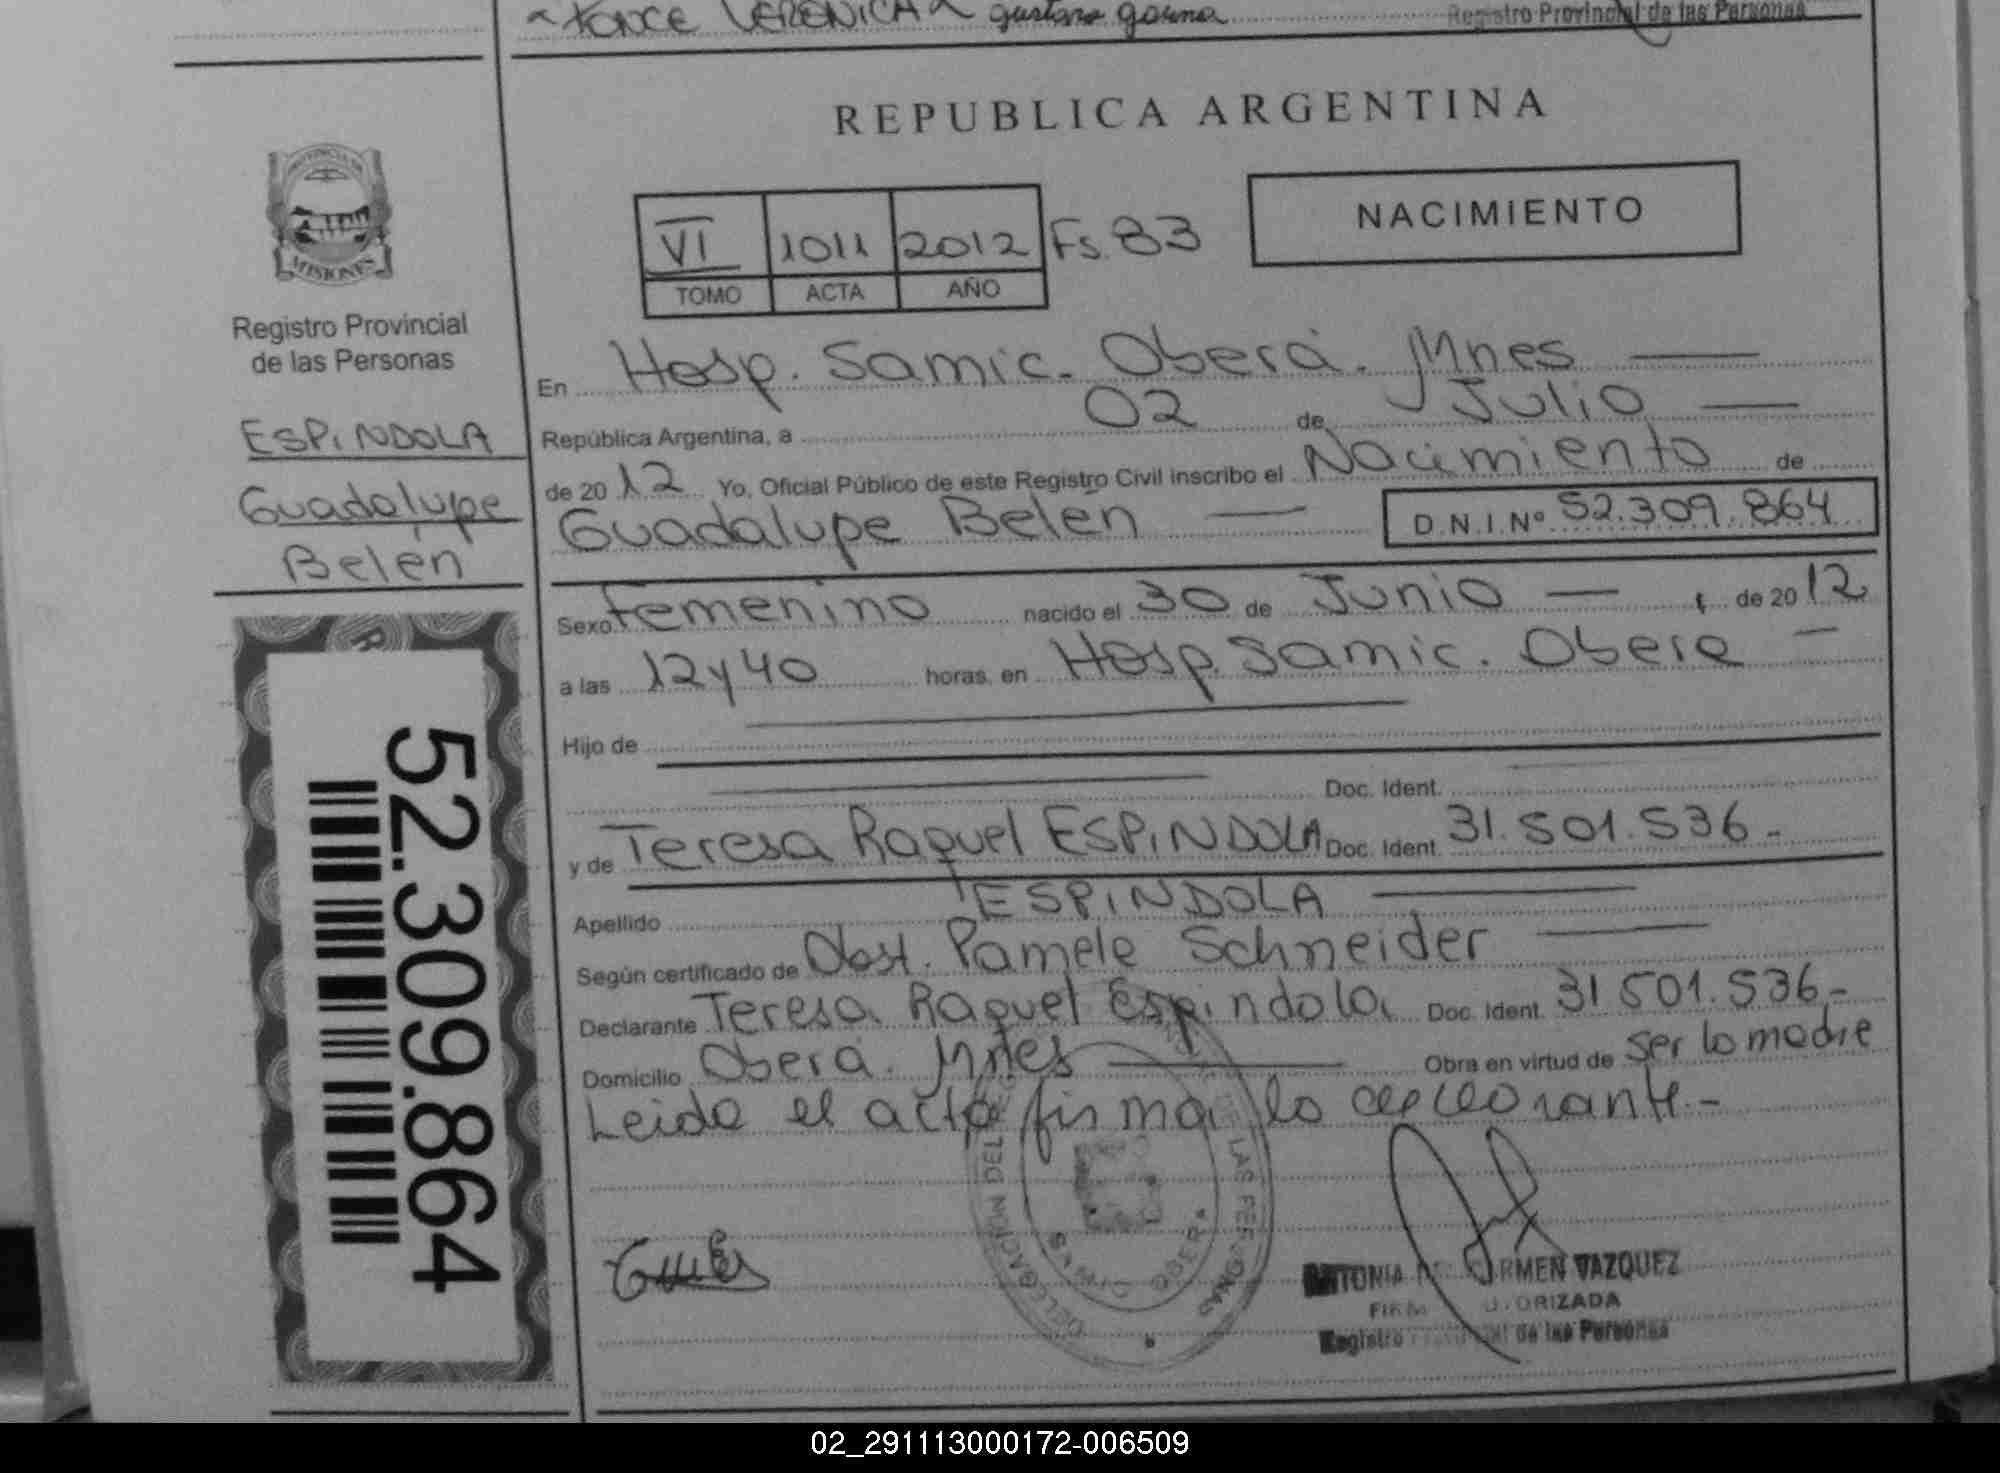 PONCE VERONICA gustavo gauna Registro Provincial de las Personas
REPUBLICA ARGENTINA
PROVINCIA DE
MISIONES
NACIMIENTO
VI 1011 2012 Fs. 83
TOMO ACTA AÑO
Registro Provincial
de las Personas
ESPINDOLA
Guadalupe
Belén
En Hosp. Samic. Oberá. Mnes
República Argentina, a 02 de Julio
de 2012 Yo, Oficial Público de este Registro Civil inscribo el Nacimiento de
Guadalupe Belén D.N.I.Nº 52.309.864
Sexo Femenino nacido el 30 de Junio de 2012
a las 12 y 40 horas, en Hosp. Samic. Obera
Hijo de
Doc. Ident.
y de Teresa Raquel ESPINDOLA Doc. Ident. 31.501.536-
Apellido ESPINDOLA
Según certificado de Obst. Pamela Schneider
Declarante Teresa Raquel Espindola Doc. Ident. 31 501.536-
Domicilio Oberá. Mnes Obra en virtud de ser la madre
Leida el acta firma la declarante-
52.309.864
DELEGACION DEL DE LAS PERSONAS
OBERA
VAZQUEZ
Registro de las Personas
02_291113000172-006509